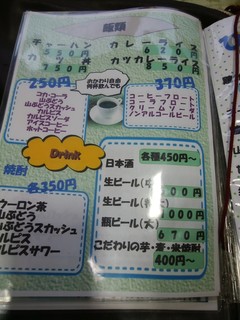 飯類
チャーハン
カレーライス
550円
620円
カツ丼
カツカレーライス
750円
850円
250円
おかわり自由
何杯飲んでも
370円
コカ・コーラ
山ぶどう
山ぶどうスカッシュ
カルピス
カルピスソーダ
アイスコーヒー
ホットコーヒー
コーヒーフロート
コーラフロート
クリームソーダ
ノンアルコールビール
Drink
焼酎
各350円
ウーロン茶
山ぶどう
山ぶどうスカッシュ
カルピス
カルピスサワー
日本酒
各種450円~
生ビール(中)
500円
生ビール(特大)
1000円
瓶ビール(大)
670円
こだわりの芋・麦・米焼酎
400円~